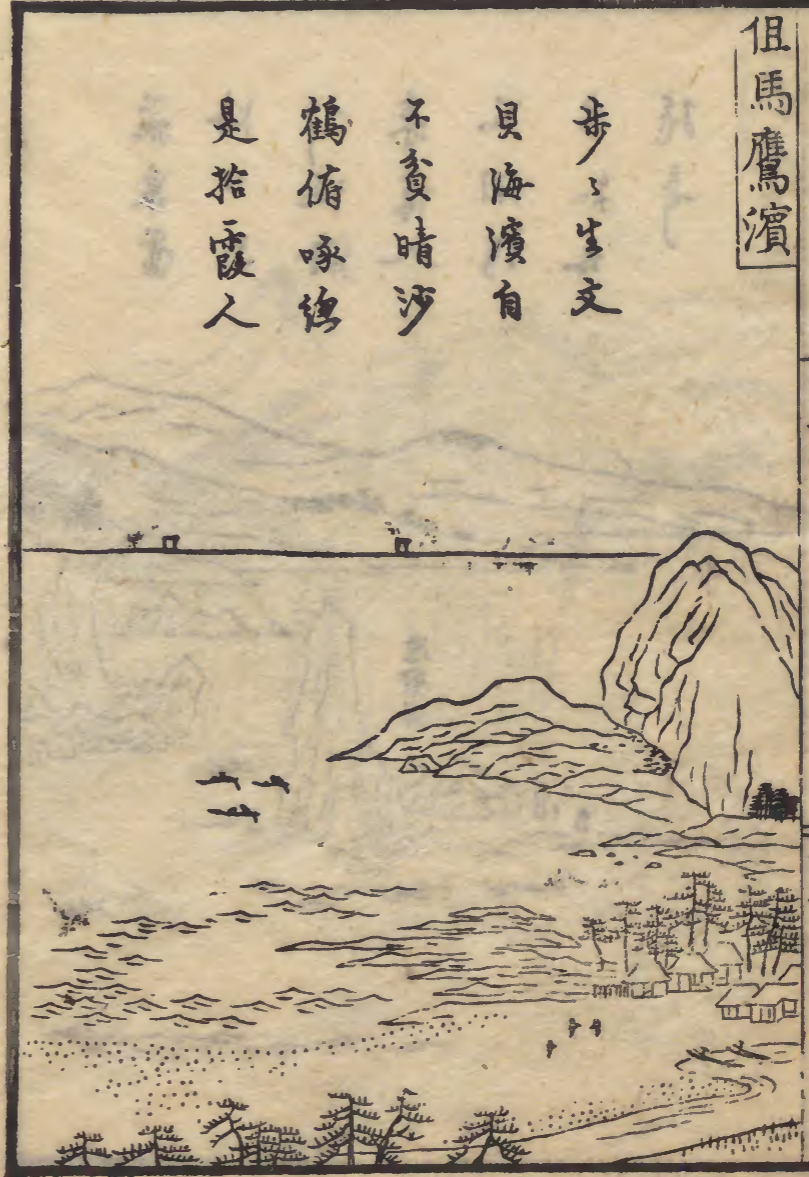 但馬鷹濱
歩〻生文
貝海濱自
不貧晴沙
鶴俯啄總
是拾霞人